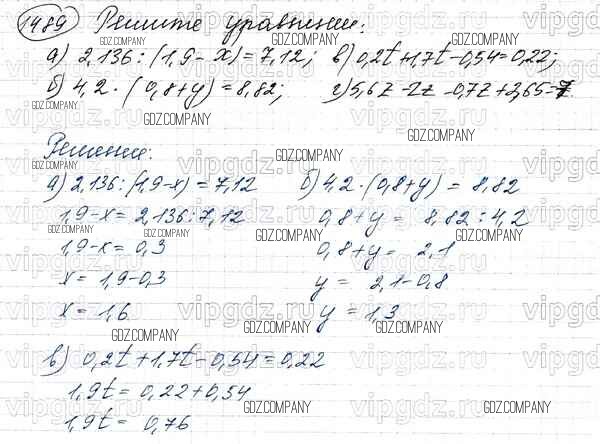 1489 Решите уравнение:
а) 2,136 : (1,9 - x) = 7,12; в) 0,2t + 1,7t - 0,54 = 0,22;
б) 4,2 · (0,8 + y) = 8,82; г) 5,6z - 2z - 0,7z + 2,65 = 7
Решение:
а) 2,136 : (1,9 - x) = 7,12 б) 4,2 · (0,8 + y) = 8,82
1,9 - x = 2,136 : 7,12 0,8 + y = 8,82 : 4,2
1,9 - x = 0,3 0,8 + y = 2,1
x = 1,9 - 0,3 y = 2,1 - 0,8
x = 1,6 y = 1,3
в) 0,2t + 1,7t - 0,54 = 0,22
1,9t = 0,22 + 0,54
1,9t = 0,76